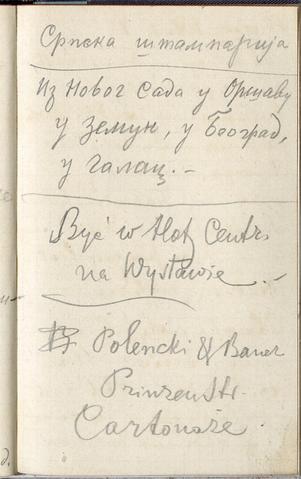 Српска штампарија
Из Новог Сада у Оршаву
у Земун, у Београд,
у Галац. –
Być w Hot Centr.
na Wystawie. –
Polencki & Bauer
Prinzenstr.
Cartonaże